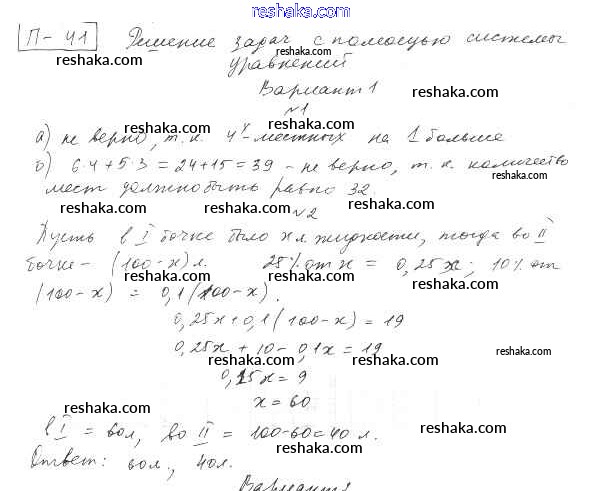 reshaka.com
П-41 Решение задач с помощью системы
reshaka.com
reshaka.com
уравнений
Вариант 1
reshaka.com
№1
reshaka.com
а) не верно, т.к. 4х-местных на 1 больше
reshaka.com
б) 6·4+5·3=24+15=39 - не верно, т.к. количество
reshaka.com
мест должно быть равно 32
reshaka.com
reshaka.com
reshaka.com
№2
Пусть в I бочке было х л жидкости, тогда во II
reshaka.com
reshaka.com
бочке - (100-х) л. 25% от х = 0,25х; 10% от
reshaka.com
(100-х) = 0,1(100-х).
reshaka.com
0,25х+0,1(100-х)=19
reshaka.com
0,25х+10-0,1х=19
reshaka.com
reshaka.com
0,15х=9
х=60
reshaka.com
reshaka.com
в I = 60л, во II = 100-60=40 л.
reshaka.com
Ответ: 60л., 40л.
reshaka.com
reshaka.com
Вариант